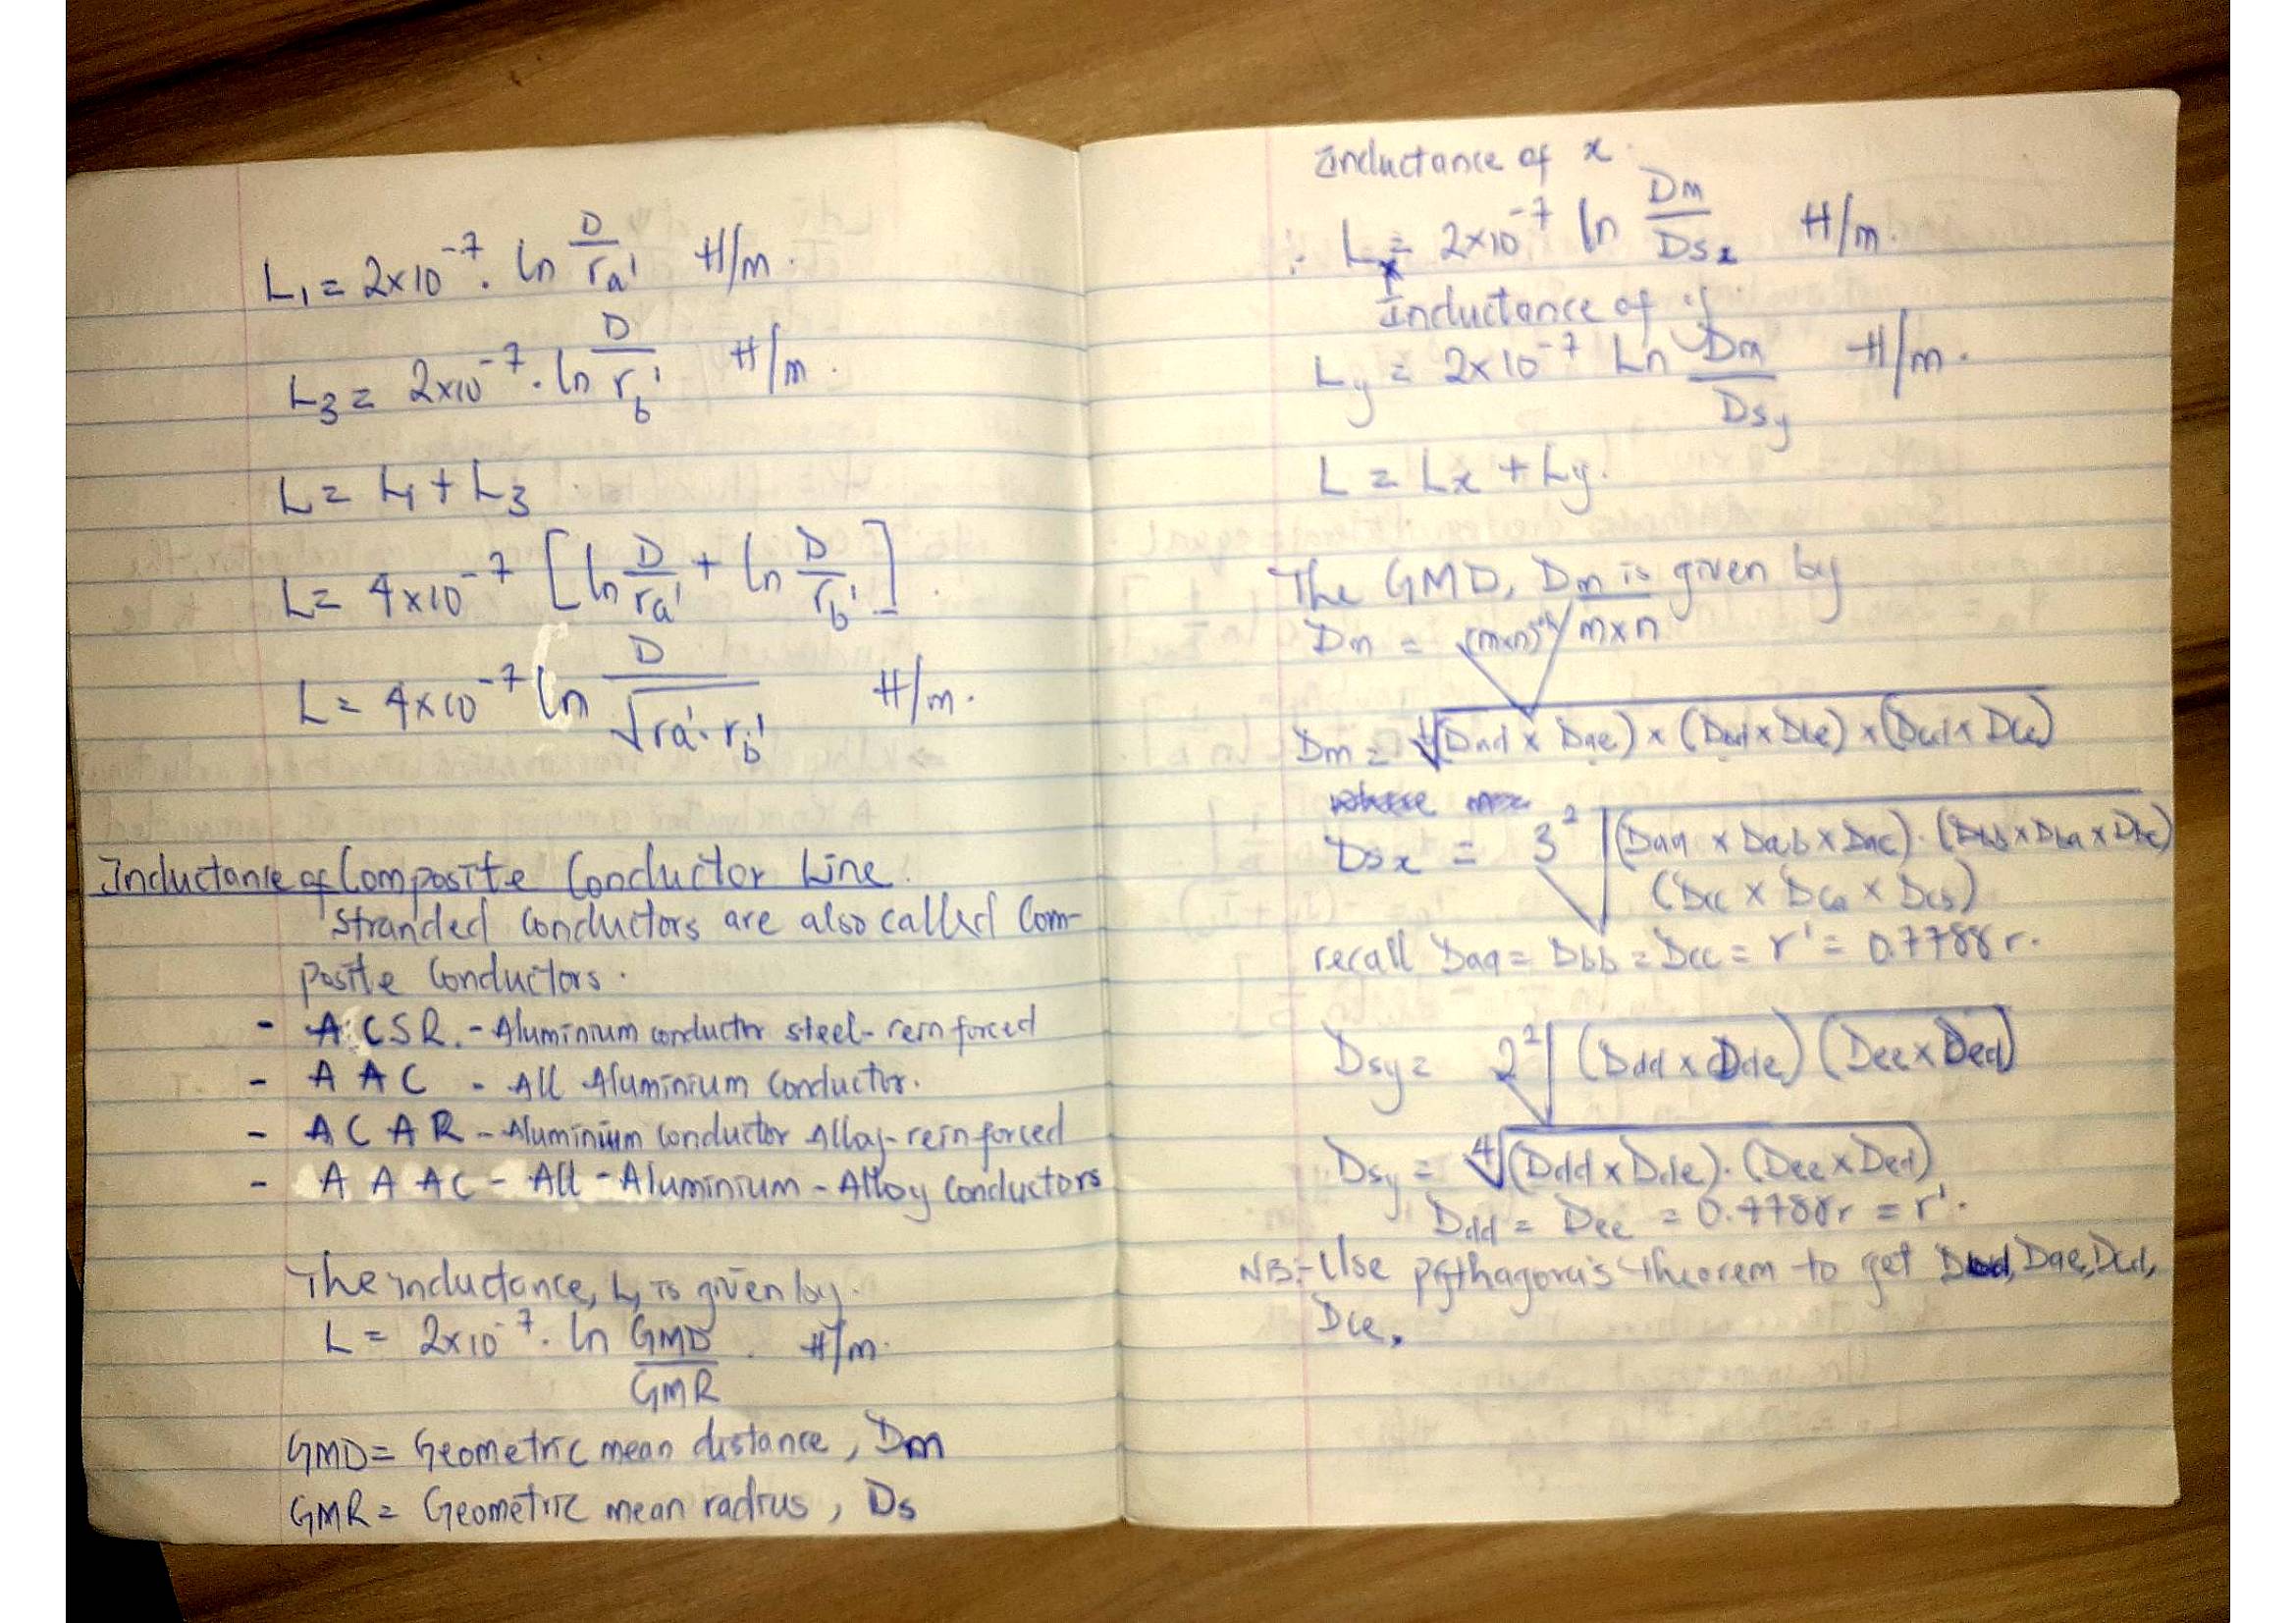 L₁ = 2×10⁻⁷. ln D/ra' H/m.
L3 = 2×10⁻⁷. ln D/rb' H/m.
L = L₁ + L3
L = 4×10⁻⁷ [ln D/ra' + ln D/rb'].
L = 4×10⁻⁷ ln D/√ra'. rb' H/m.
Inductance of Composite Conductor Line.
Stranded conductors are also called Com-
posite Conductors.
- ACSR. - Aluminium conductor steel-reinforced
- AAC - All Aluminium Conductor.
- ACAR - Aluminium conductor Alloy-reinforced
- AAAC - All-Aluminium-Alloy Conductors
The inductance, L, is given by.
L = 2×10⁻⁷. ln GMD/GMR. H/m.
GMD = Geometric mean distance, Dm
GMR = Geometric mean radius, Ds
Inductance of x.
∴ Lx = 2×10⁻⁷ ln Dm/Dsx H/m.
Inductance of y.
Ly = 2×10⁻⁷ Ln Dm/Dsy H/m.
L = Lx + Ly.
The GMD, Dm is given by
Dm = (m×n)th √m×n
Dm = √(Dad × Dae) × (Dbd × Dbe) × (Dcd × Dce)
where
Dsx = 3² √(Daa × Dab × Dac). (Dbb × Dba × Dbc)
(Dcc × Dca × Dcb)
recall Daa = Dbb = Dcc = r' = 0.7788r.
Dsy = 2² √(Ddd × Dde) (Dee × Ded)
Dsy = ⁴√(Ddd × Dde). (Dee × Ded)
Ddd = Dee = 0.7788r = r'.
NB:- Use pythagora's theorem to get Dbd, Dae, Dcd,
Dce.